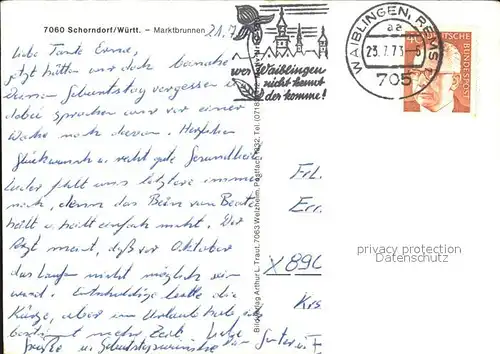 7060 Schorndorf/Württ. – Marktbrunnen
21.7
Liebe Tante Erna,
jetzt hätten wir doch beinahe
Deinen Geburtstag vergessen u.
dabei sprachen wir vor einer
Woche noch davon. Herzlichen
Glückwunsch u. recht gute Gesundheit
Leider fehlt uns letztere immer
noch, denn das Bein von Beate
heilt u. heilt einfach nicht. Der
Arzt meint, daß vor Oktober
das Laufen nicht möglich sein
wird. Entschuldige bitte die
Kürze, aber im Urlaub habe ich
bestimmt mehr Zeit. Liebe
Grüße u. Geburtstagswünsche
Günter u.
wer Waiblingen
nicht kennt
der komme!
WAIBLINGEN, REMS
aa
23.7.73 - 5
705
40
DEUTSCHE BUNDESPOST
Frl.
Err
X 896
Krs.
Bild und Verlag Arthur L. Traut, 7063 Welzheim, Postfach 1232, Tel. (0718
privacy protection
ansichtskarten-lexikon.de